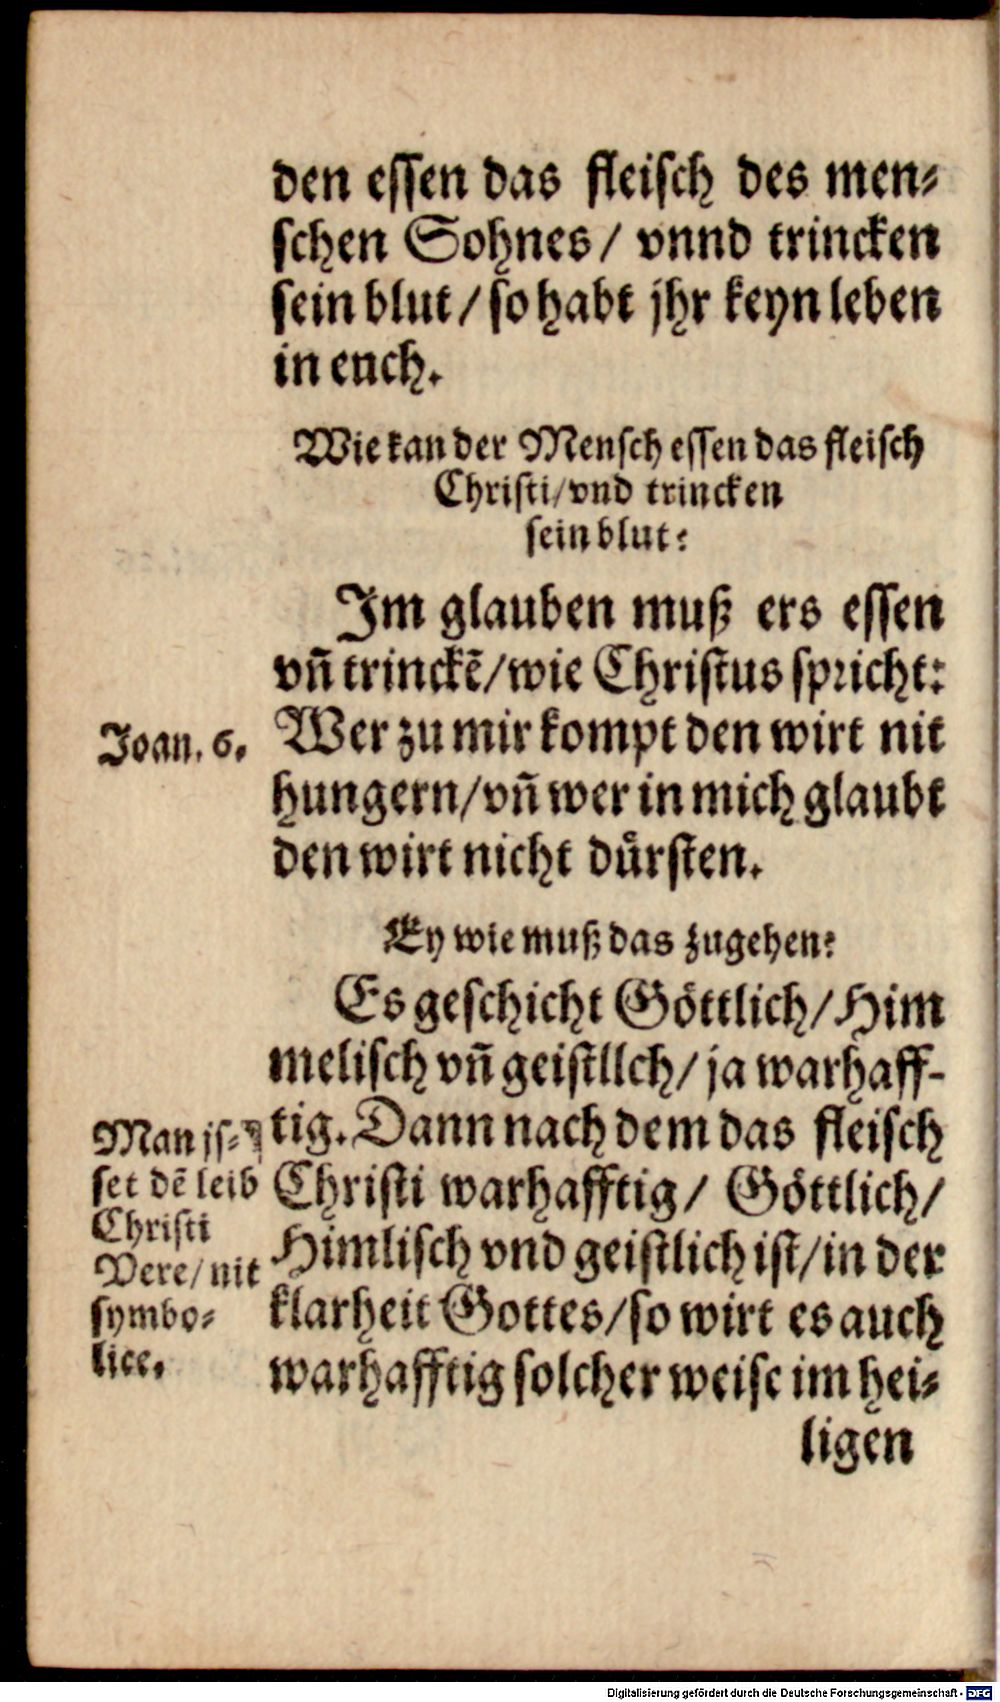 den essen das fleisch des men⸗
schen Sohnes / vnnd trincken
sein blut / so habt jhr keyn leben
in euch.
Wie kan der Mensch essen das fleisch
Christi / vnd trincken
sein blut?
Im glauben muß ers essen
vñ trinckẽ / wie Christus spricht:
Joan. 6.
Wer zu mir kompt den wirt nit
hungern / vñ wer in mich glaubt
den wirt nicht dürsten.
Ey wie muß das zugehen?
Es geschicht Göttlich / Him
melisch vñ geistllch / ja warhaff-
tig. Dann nach dem das fleisch
Christi warhafftig / Göttlich /
Himlisch vnd geistlich ist / in der
klarheit Gottes / so wirt es auch
warhafftig solcher weise im hei⸗
Man js⸗
set dẽ leib
Christi
Vere / nit
symbo⸗
lice.
ligen
Digitalisierung gefördert durch die Deutsche Forschungsgemeinschaft - DFG